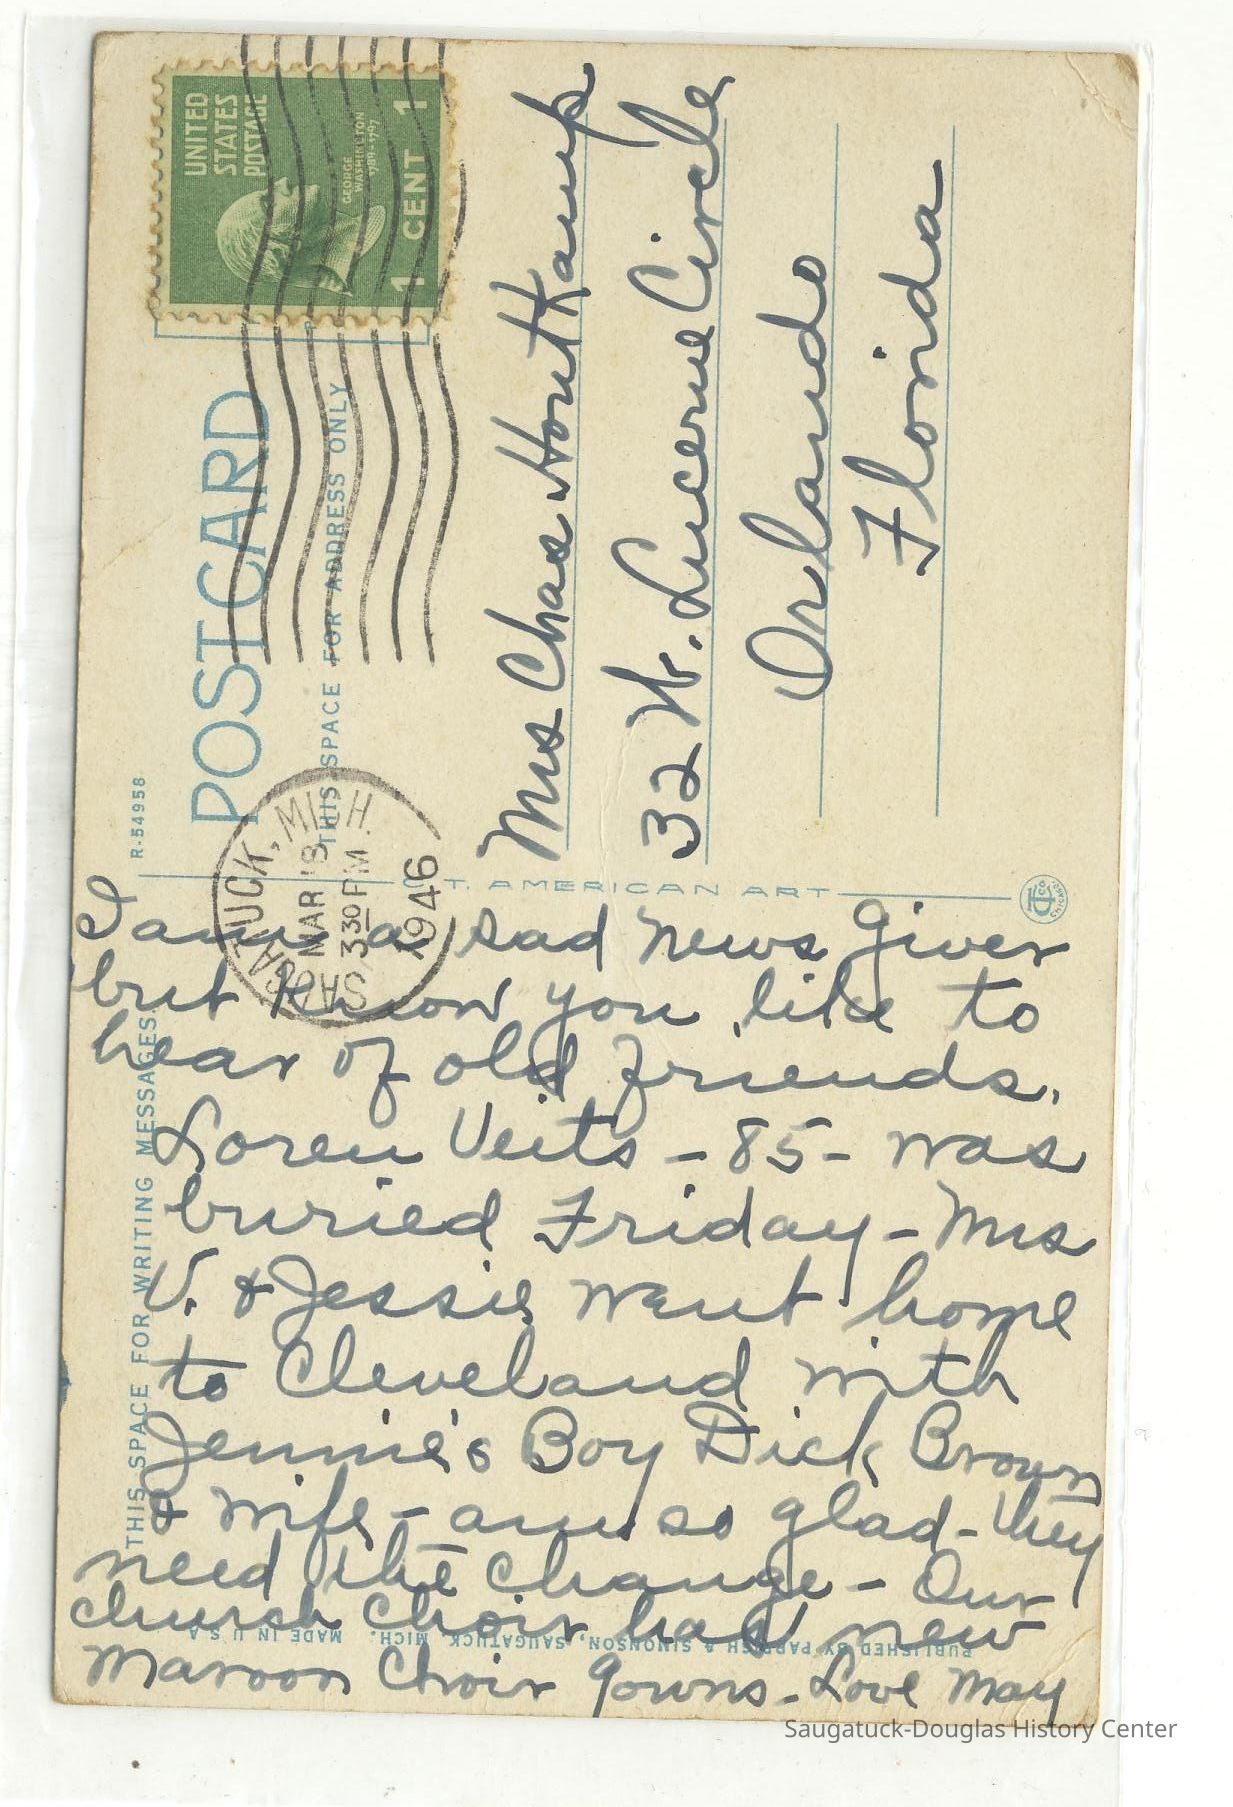 UNITED
STATES
POSTAGE
GEORGE
WASHINGTON
1789-1797
1 CENT 1
POSTCARD
THIS SPACE FOR ADDRESS ONLY
R-54958
SAUGATUCK, MICH.
MAR 18
3 30 PM
1946
Mrs Chas Hontkamp
32 W. Lucerne Circle
Orlando
Florida
C. T. AMERICAN ART
CHICAGO
THIS SPACE FOR WRITING MESSAGES
I am a sad news giver
but know you like to
hear of old friends.
Loren Veits - 85 - was
buried Friday - Mrs
V. & Jessie went home
to Cleveland with
Jennie's Boy Dick Brown
& wife - am so glad - they
need the change - Our
church choir has new
maroon choir gowns - Love May
PUBLISHED BY PARRISH & SIMONSON, SAUGATUCK, MICH. MADE IN U S A
Saugatuck-Douglas History Center